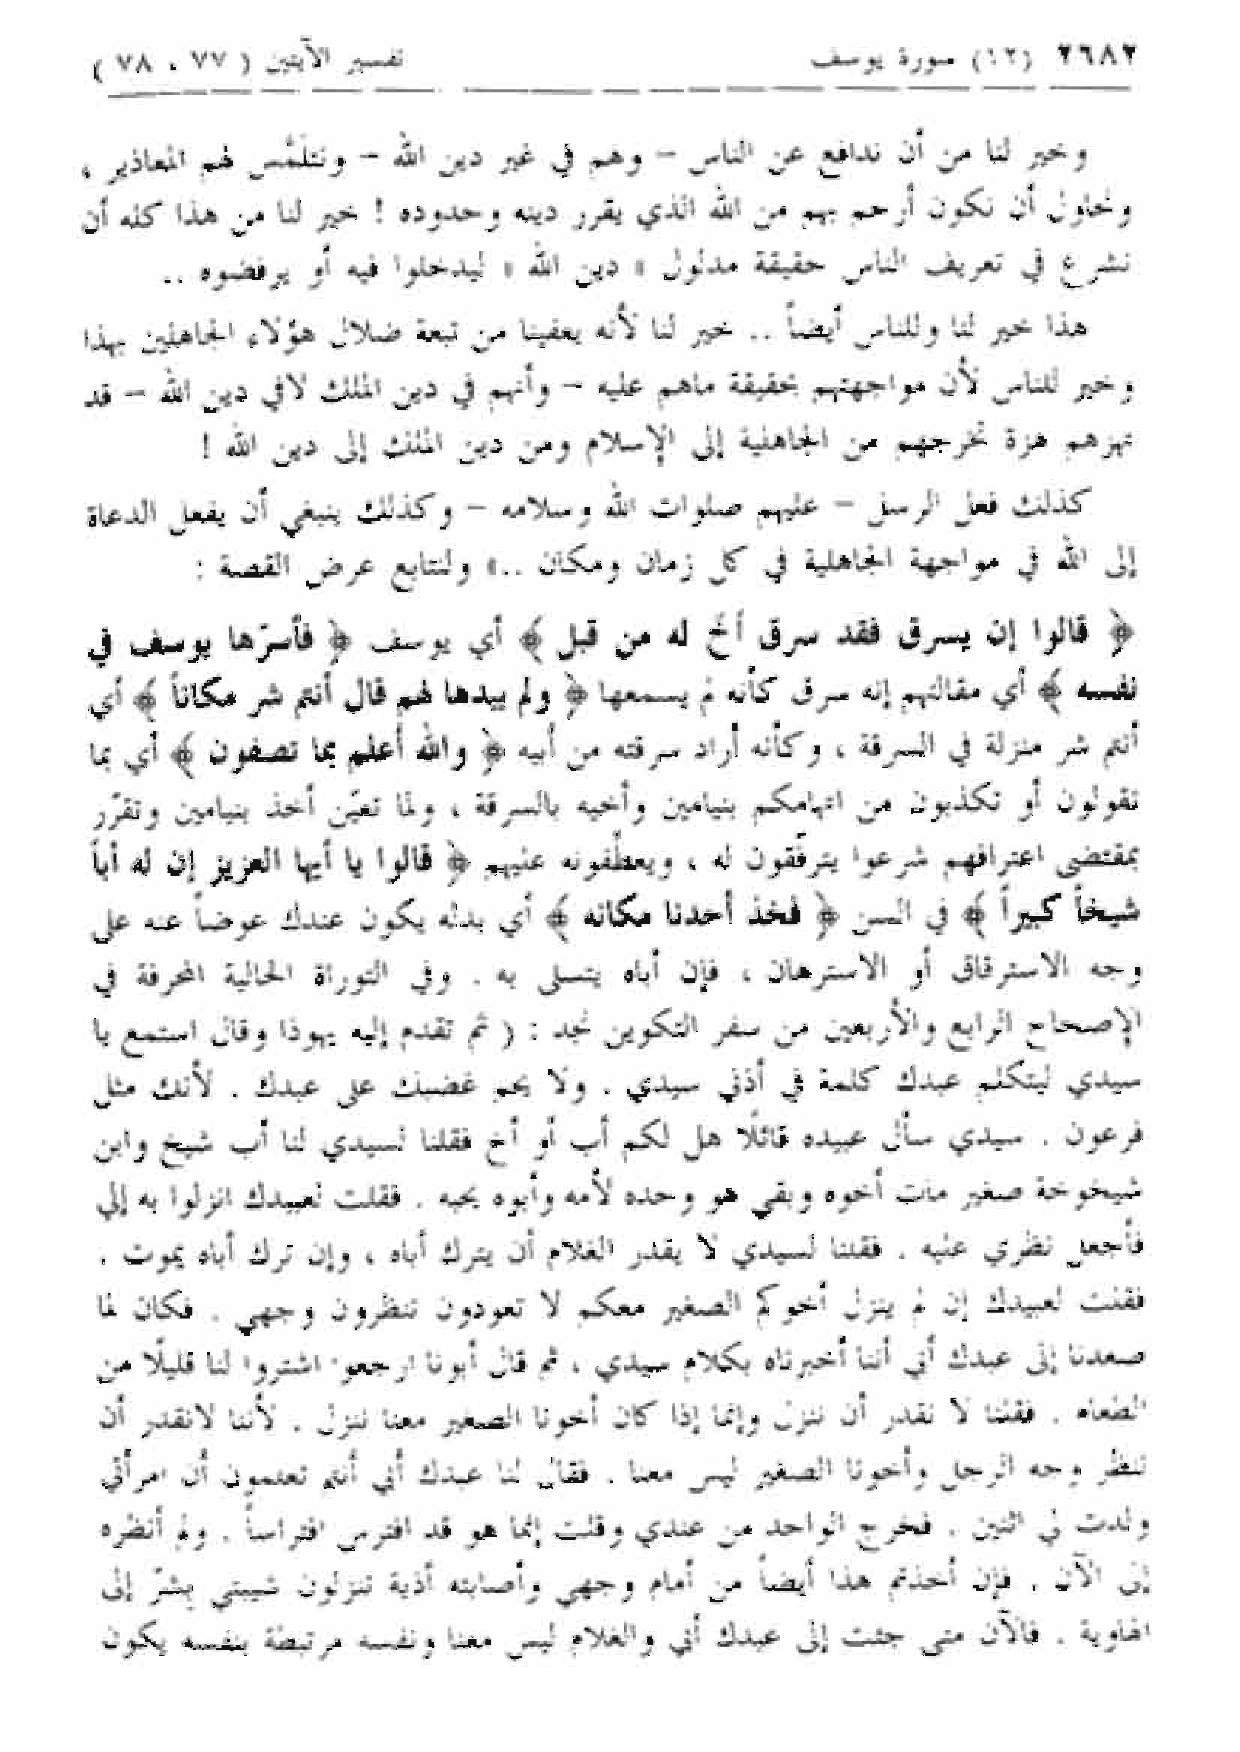 ٢٦٨٢ (١٢) سورة يوسف تفسير الآيتين ( ٧٧ ، ٧٨ )
وخير لنا من أن ندافع عن الناس – وهم في غير دين الله – ونتلمَّس لهم المعاذير ،
ونحاول أن نكون أرحم بهم من الله الذي يقرر دينه وحدوده ! خير لنا من هذا كله أن
نشرع في تعريف الناس حقيقة مدلول « دين الله » ليدخلوا فيه أو يرفضوه ..
هذا خير لنا وللناس أيضاً .. خير لنا لأنه يعفينا من تبعة ضلال هؤلاء الجاهلين بهذا
وخير للناس لأن مواجهتهم بحقيقة ماهم عليه – وأنهم في دين الملك لافي دين الله – قد
تهزهم هزة تخرجهم من الجاهلية إلى الإسلام ومن دين الملك إلى دين الله !
كذلك فعل الرسل – عليهم صلوات الله وسلامه – وكذلك ينبغي أن يفعل الدعاة
إلى الله في مواجهة الجاهلية في كل زمان ومكان ..» ولنتابع عرض القصة :
﴿ قالوا إن يسرق فقد سرق أخ له من قبل ﴾ أي يوسف ﴿ فأسرّها يوسف في
نفسه ﴾ أي مقالتهم إنه سرق كأنه لم يسمعها ﴿ ولم يبدها لهم قال أنتم شر مكاناً ﴾ أي
أنتم شر منزلة في السرقة ، وكأنه أراد سرقته من أبيه ﴿ والله أعلم بما تصفون ﴾ أي بما
تقولون أو تكذبون من اتهامكم بنيامين وأخيه بالسرقة ، ولما تعيّن أخذ بنيامين وتقرّر
بمقتضى اعترافهم شرعوا يترفّقون له ، ويعطّفونه عليهم ﴿ قالوا يا أيها العزيز إن له أباً
شيخاً كبيراً ﴾ في السن ﴿ فخذ أحدنا مكانه ﴾ أي بدله يكون عندك عوضاً عنه على
وجه الاسترقاق أو الاسترهان ، فإن أباه يتسلى به . وفي التوراة الحالية المحرفة في
الإصحاح الرابع والأربعين من سفر التكوين نجد : ( ثم تقدم إليه يهوذا وقال استمع يا
سيدي ليتكلم عبدك كلمة في أذني سيدي . ولا يحم غضبك على عبدك . لأنك مثل
فرعون . سيدي سأل عبيده قائلًا هل لكم أب أو أخ فقلنا لسيدي لنا أب شيخ وابن
شيخوخة صغير مات أخوه وبقي هو وحده لأمه وأبوه يحبه . فقلت لعبيدك انزلوا به إلي
فأجعل نظري عليه . فقلنا لسيدي لا يقدر الغلام أن يترك أباه ، وإن ترك أباه يموت .
فقلت لعبيدك إن لم ينزل أخوكم الصغير معكم لا تعودون تنظرون وجهي . فكان لما
صعدنا إلى عبدك أبي أننا أخبرناه بكلام سيدي ، ثم قال أبونا ارجعوا اشتروا لنا قليلًا من
الطعام . فقلنا لا نقدر أن ننزل وإنما إذا كان أخونا الصغير معنا ننزل . لأننا لانقدر أن
ننظر وجه الرجل وأخونا الصغير ليس معنا . فقال لنا عبدك أبي أنتم تعلمون أن امرأتي
ولدت لي اثنين . فخرج الواحد من عندي وقلت إنما هو قد افترس افتراساً . ولم أنظره
إلى الآن . فإن أخذتم هذا أيضاً من أمام وجهي وأصابته أذية تنزلون شيبتي بشرّ إلى
الهاوية . فالآن متى جئت إلى عبدك أبي والغلام ليس معنا ونفسه مرتبطة بنفسه يكون